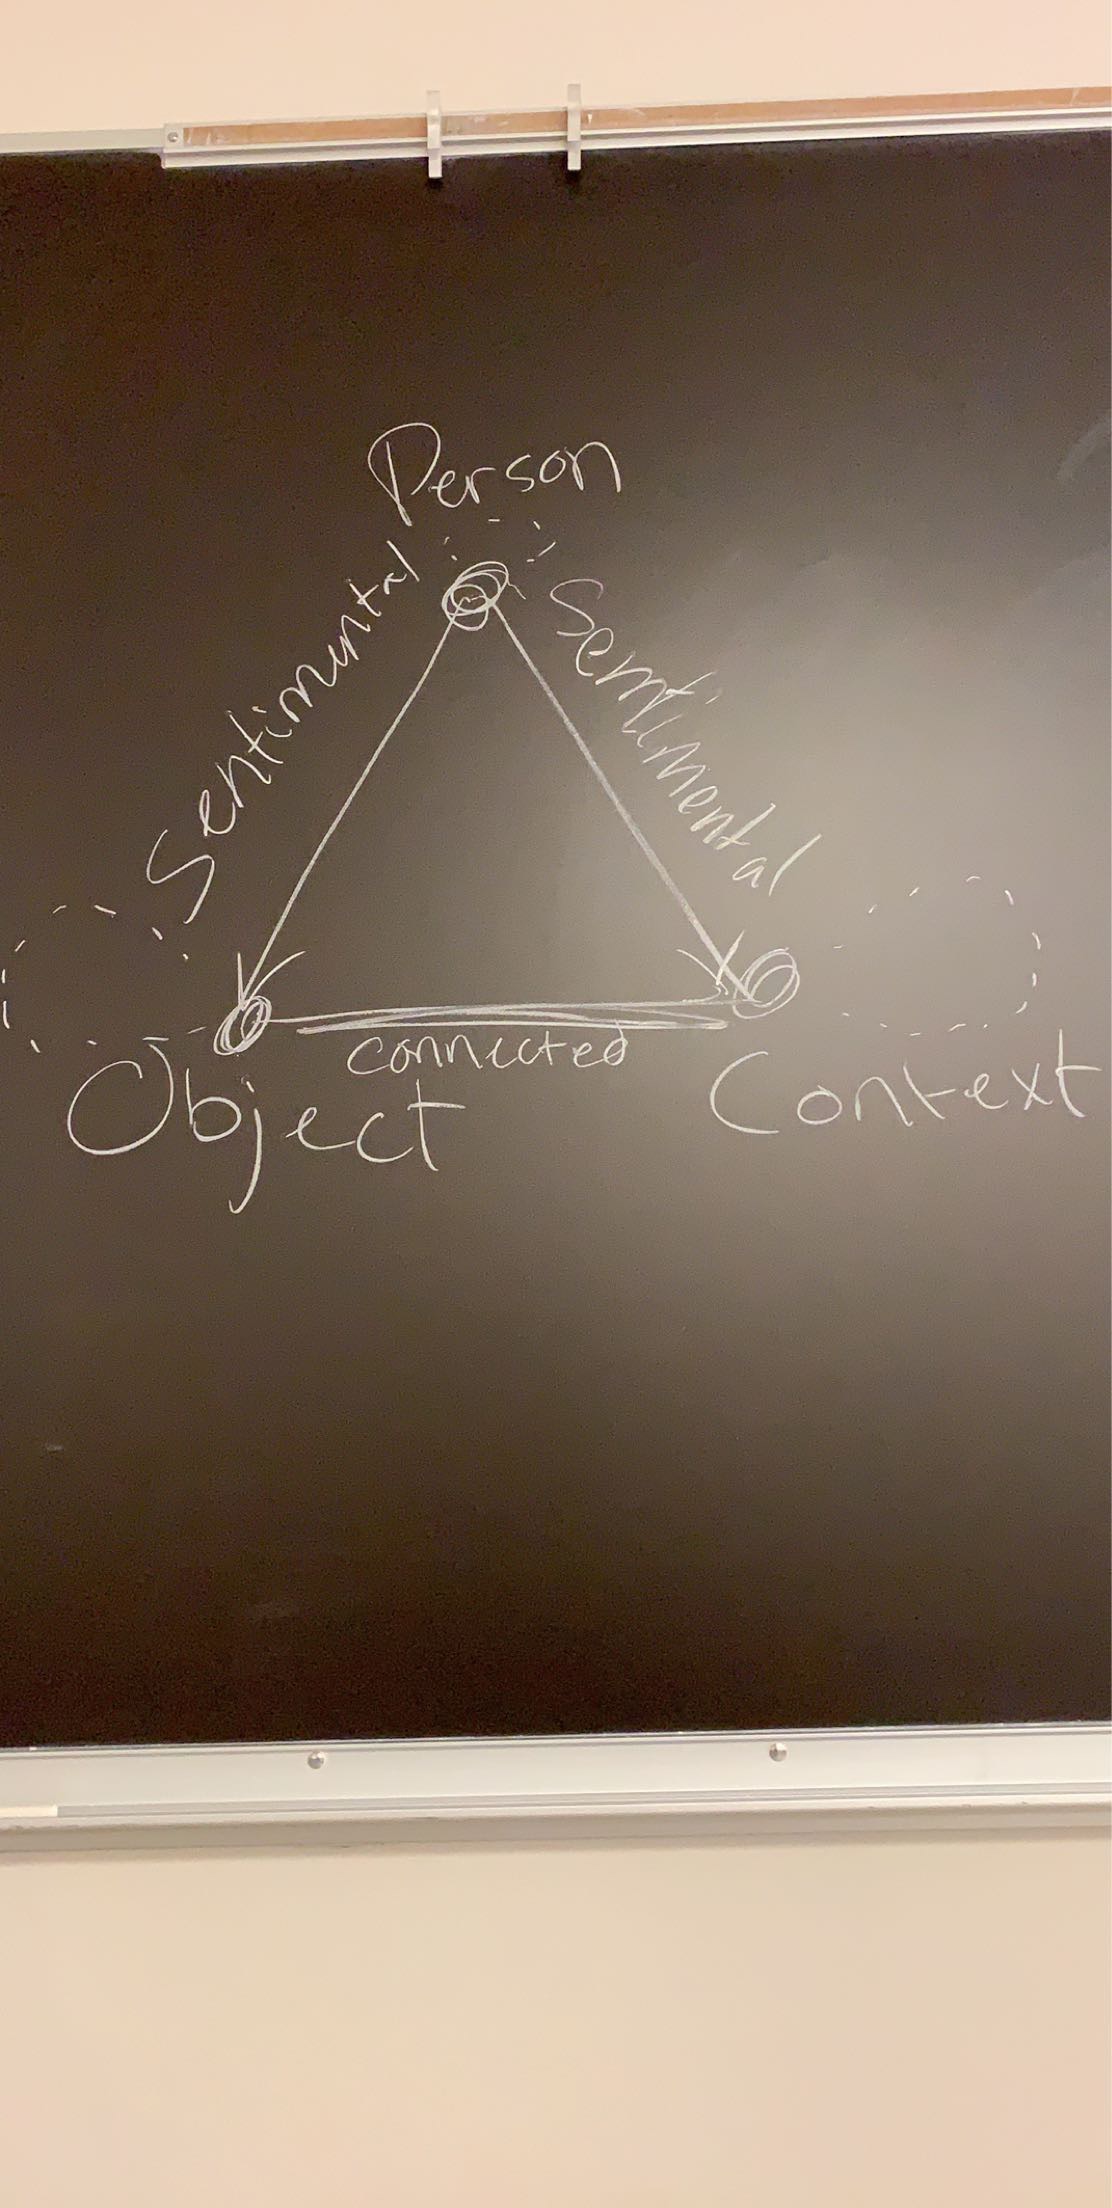 Person
Sentimental
Sentimental
connected
Object
Context